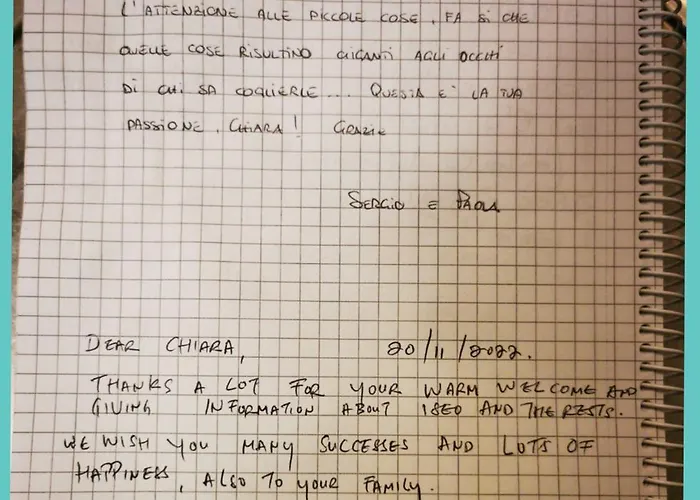 L'ATTENZIONE ALLE PICCOLE COSE, FA SÌ CHE
QUELLE COSE RISULTINO GIGANTI AGLI OCCHI
DI CHI SA COGLIERLE... QUESTA E' LA TUA
PASSIONE, CHIARA! GRAZIE
SERGIO E PAOLA
DEAR CHIARA, 20/11/2022.
THANKS A LOT FOR YOUR WARM WELCOME AND
GIVING INFORMATION ABOUT ISEO AND THE RESTS.
WE WISH YOU MANY SUCCESSES AND LOTS OF
HAPPINESS, ALSO TO YOUR FAMILY.